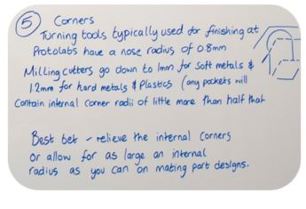 ⑤ Corners
Turning tools typically used for finishing at
Protolabs have a nose radius of 0.8mm
Milling cutters go down to 1mm for soft metals &
1.2mm for hard metals & Plastics (any pockets will
contain internal corner radii of little more than half that
Best bet - relieve the internal corners
or allow for as large an internal
radius as you can on mating part designs.